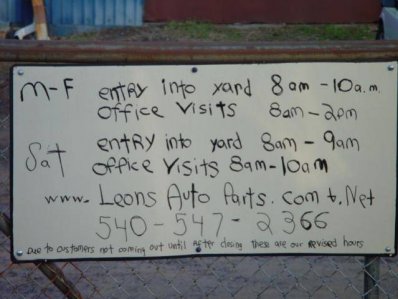 M-F entry into yard 8am-10a.m.
office visits 8am-2pm
Sat entry into yard 8am-9am
office visits 8am-10am
www.LeonsAutoParts.com &.Net
540-547-2366
Due to customers not coming out until after closing these are our revised hours